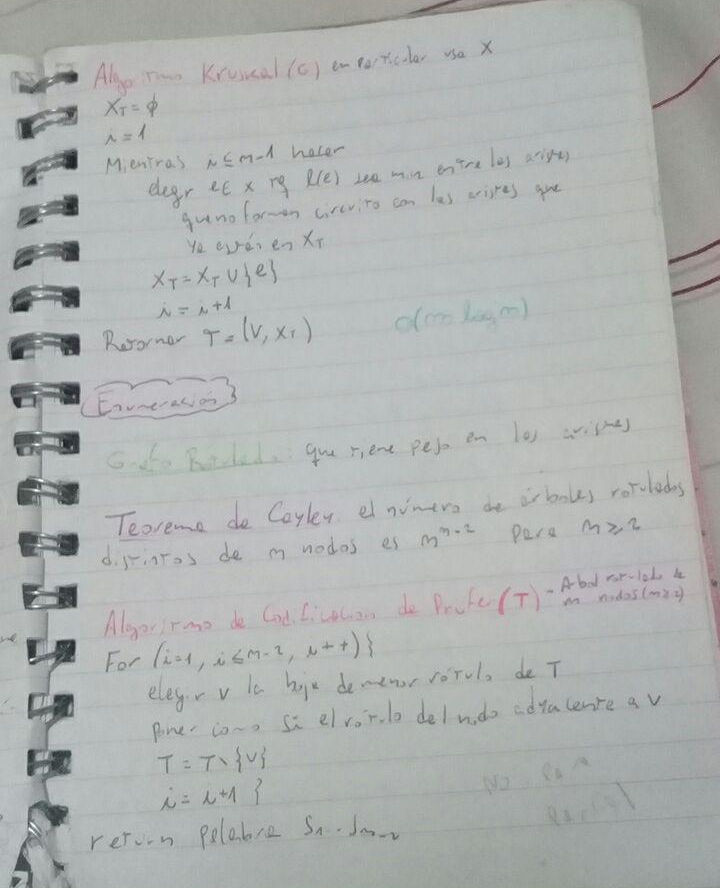 Algoritmo Kruskal (G) en particular usa X
X_T = ϕ
i = 1
Mientras i ≤ n-1 hacer
elegir e ∈ X tq l(e) sea min entre las aristas
que no forman circuito con las aristas que
ya están en X_T
X_T = X_T ∪ {e}
i = i+1
Retornar T = (V, X_T) O(m log n)
Enumeración
Grafo Rotulado: que tiene peso en las aristas
Teorema de Cayley: el número de árboles rotulados
distintos de n nodos es n^{n-2} para n ≥ 2
Algoritmo de Codificación de Prufer (T) - Arbol rotulado de
n nodos (n ≥ 2)
For (i=1, i ≤ n-2, i++) }
elegir v la hoja de menor rótulo de T
poner como Si el rótulo del nodo adyacente a v
T = T \ {v}
i = i+1 }
return palabra S1...Sn-2